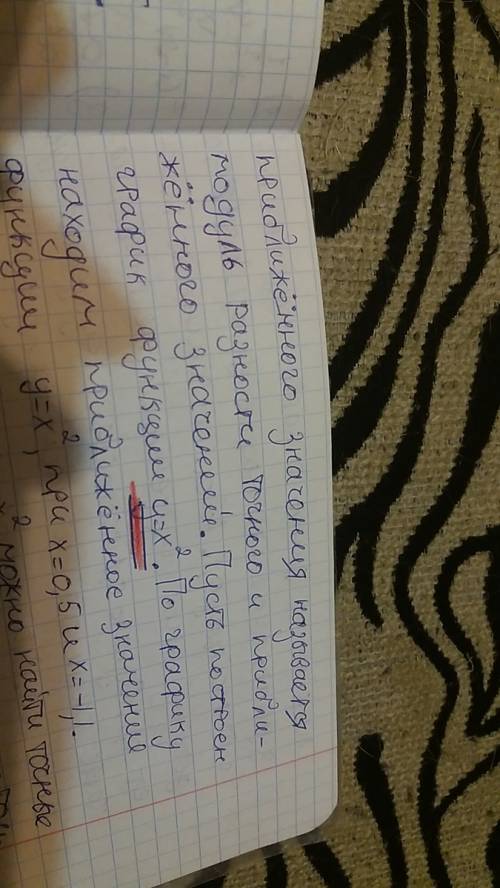 приближённого значения называется
модуль разности точного и прибли-
жённого значений. Пусть построен
график функции y=x². По графику
находим приближённое значение
функции y=x², при x=0,5 и x=-1,1.
x² можно найти точные